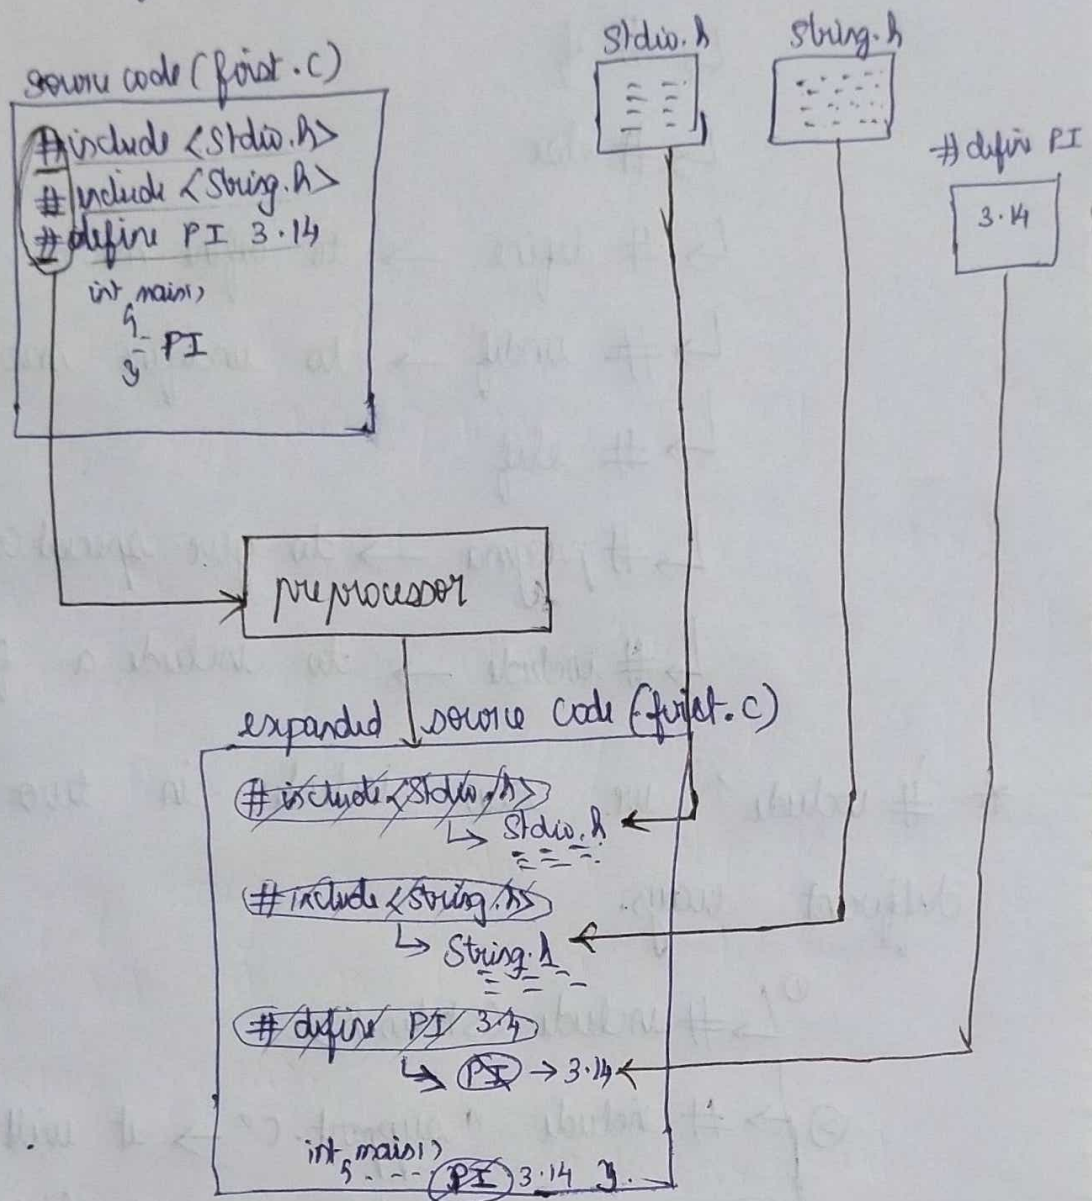 source code (first.c)
#include <Stdio.h>
#include <String.h>
#define PI 3.14
int main()
{
PI
}
Stdio.h
String.h
# define PI
3.14
preprocessor
expanded source code (first.c)
#include <Stdio.h>
↳ Stdio.h
#include <String.h>
↳ String.h
# define PI 3.14
↳ PI → 3.14
int main()
{ PI 3.14 }